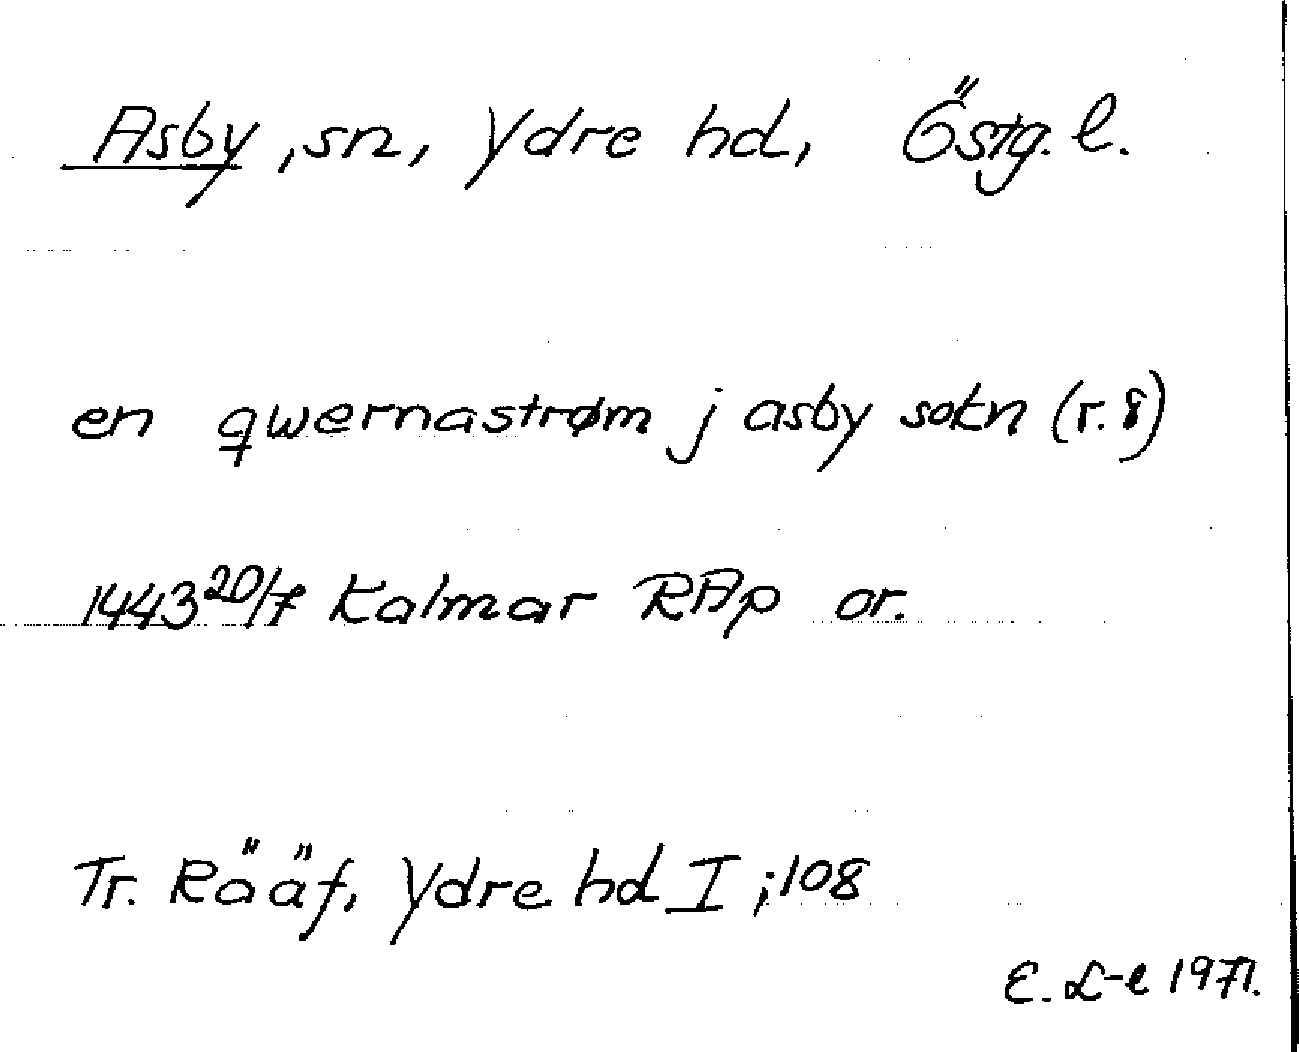 Asby, sn, Ydre hd, Östg. l.
en qwernastrøm j asby sokn (r. 8)
1443 20/7 Kalmar RAp or.
Tr. Rääf, Ydre hd I ; 108
E. L-e 1971.